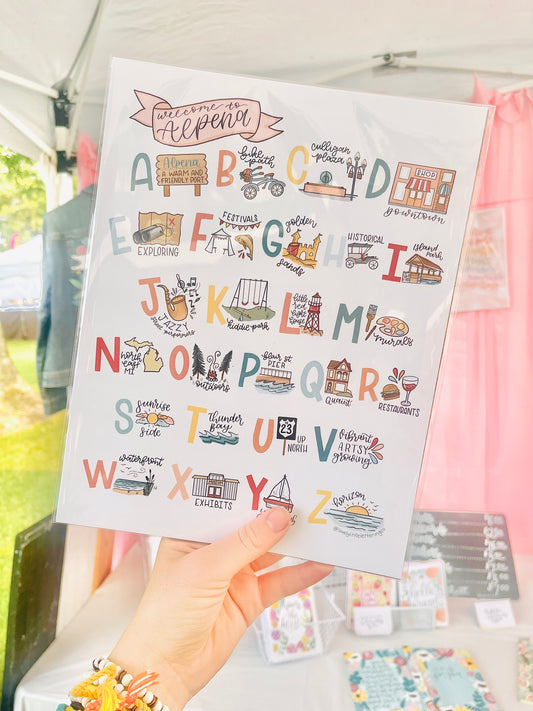 welcome to
Alpena
A
Alpena,
A WARM AND
FRIENDLY PORT
B
bike
path
C
culligan
plaza
D
SHOP
downtown
E
EXPLORING
F
FESTIVALS
G
golden
sands
H
HISTORICAL
I
island
park
J
JAZZY
K
kiddie park
L
little
red
light
house
M
murals
N
NORTH
EAST
MI
O
outdoors
P
blair st
PIER
Q
QUAINT
R
RESTAURANTS
S
sunrise
side
T
thunder
bay
U
23
UP
NORTH
V
vibrant
ARTSY
growing
W
waterfront
X
EXHIBITS
Y
Z
horizon